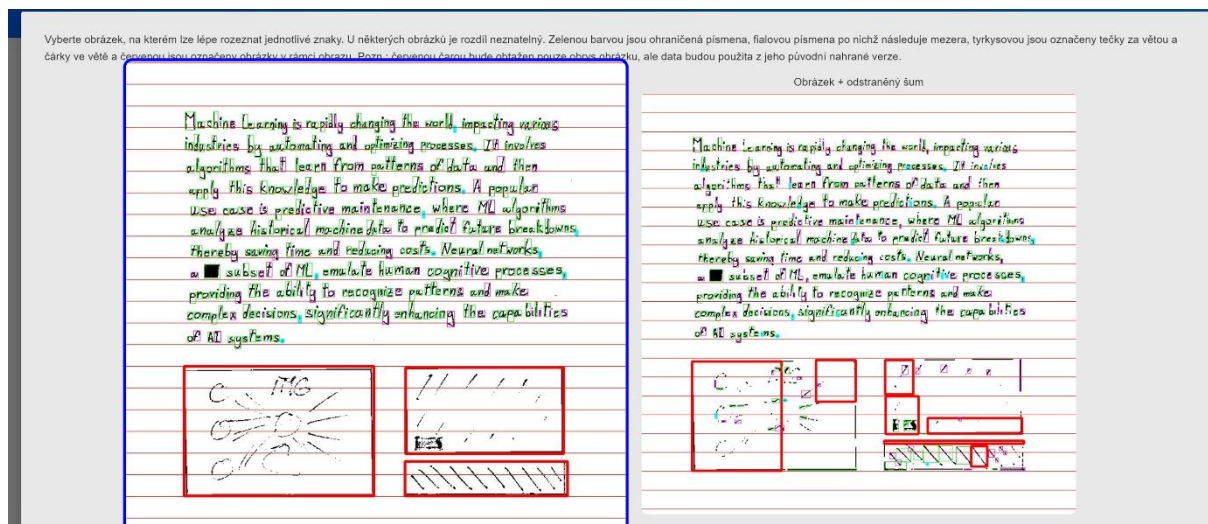 Vyberte obrázek, na kterém lze lépe rozeznat jednotlivé znaky. U některých obrázků je rozdíl neznatelný. Zelenou barvou jsou ohraničená písmena, fialovou písmena po nichž následuje mezera, tyrkysovou jsou označeny tečky za větou a
čárky ve větě a červenou jsou označeny obrázky v rámci obrazu. Pozn.: červenou čarou bude obtažen pouze obrys obrázku, ale data budou použita z jeho původní nahrané verze.
Machine Learning is rapidly changing the world, impacting various
industries by automating and optimizing processes. It involves
algorithms that learn from patterns of data and then
apply this knowledge to make predictions. A popular
use case is predictive maintenance, where ML algorithms
analyze historical machine data to predict future breakdowns,
thereby saving time and reducing costs. Neural networks,
a subset of ML, emulate human cognitive processes,
providing the ability to recognize patterns and make
complex decisions, significantly enhancing the capabilities
of AI systems.
IMG
Obrázek + odstraněný šum
Machine Learning is rapidly changing the world, impacting various
industries by automating and optimizing processes. It involves
algorithms that learn from patterns of data and then
apply this knowledge to make predictions. A popular
use case is predictive maintenance, where ML algorithms
analyze historical machine data to predict future breakdowns,
thereby saving time and reducing costs. Neural networks,
a subset of ML, emulate human cognitive processes,
providing the ability to recognize patterns and make
complex decisions, significantly enhancing the capabilities
of AI systems.